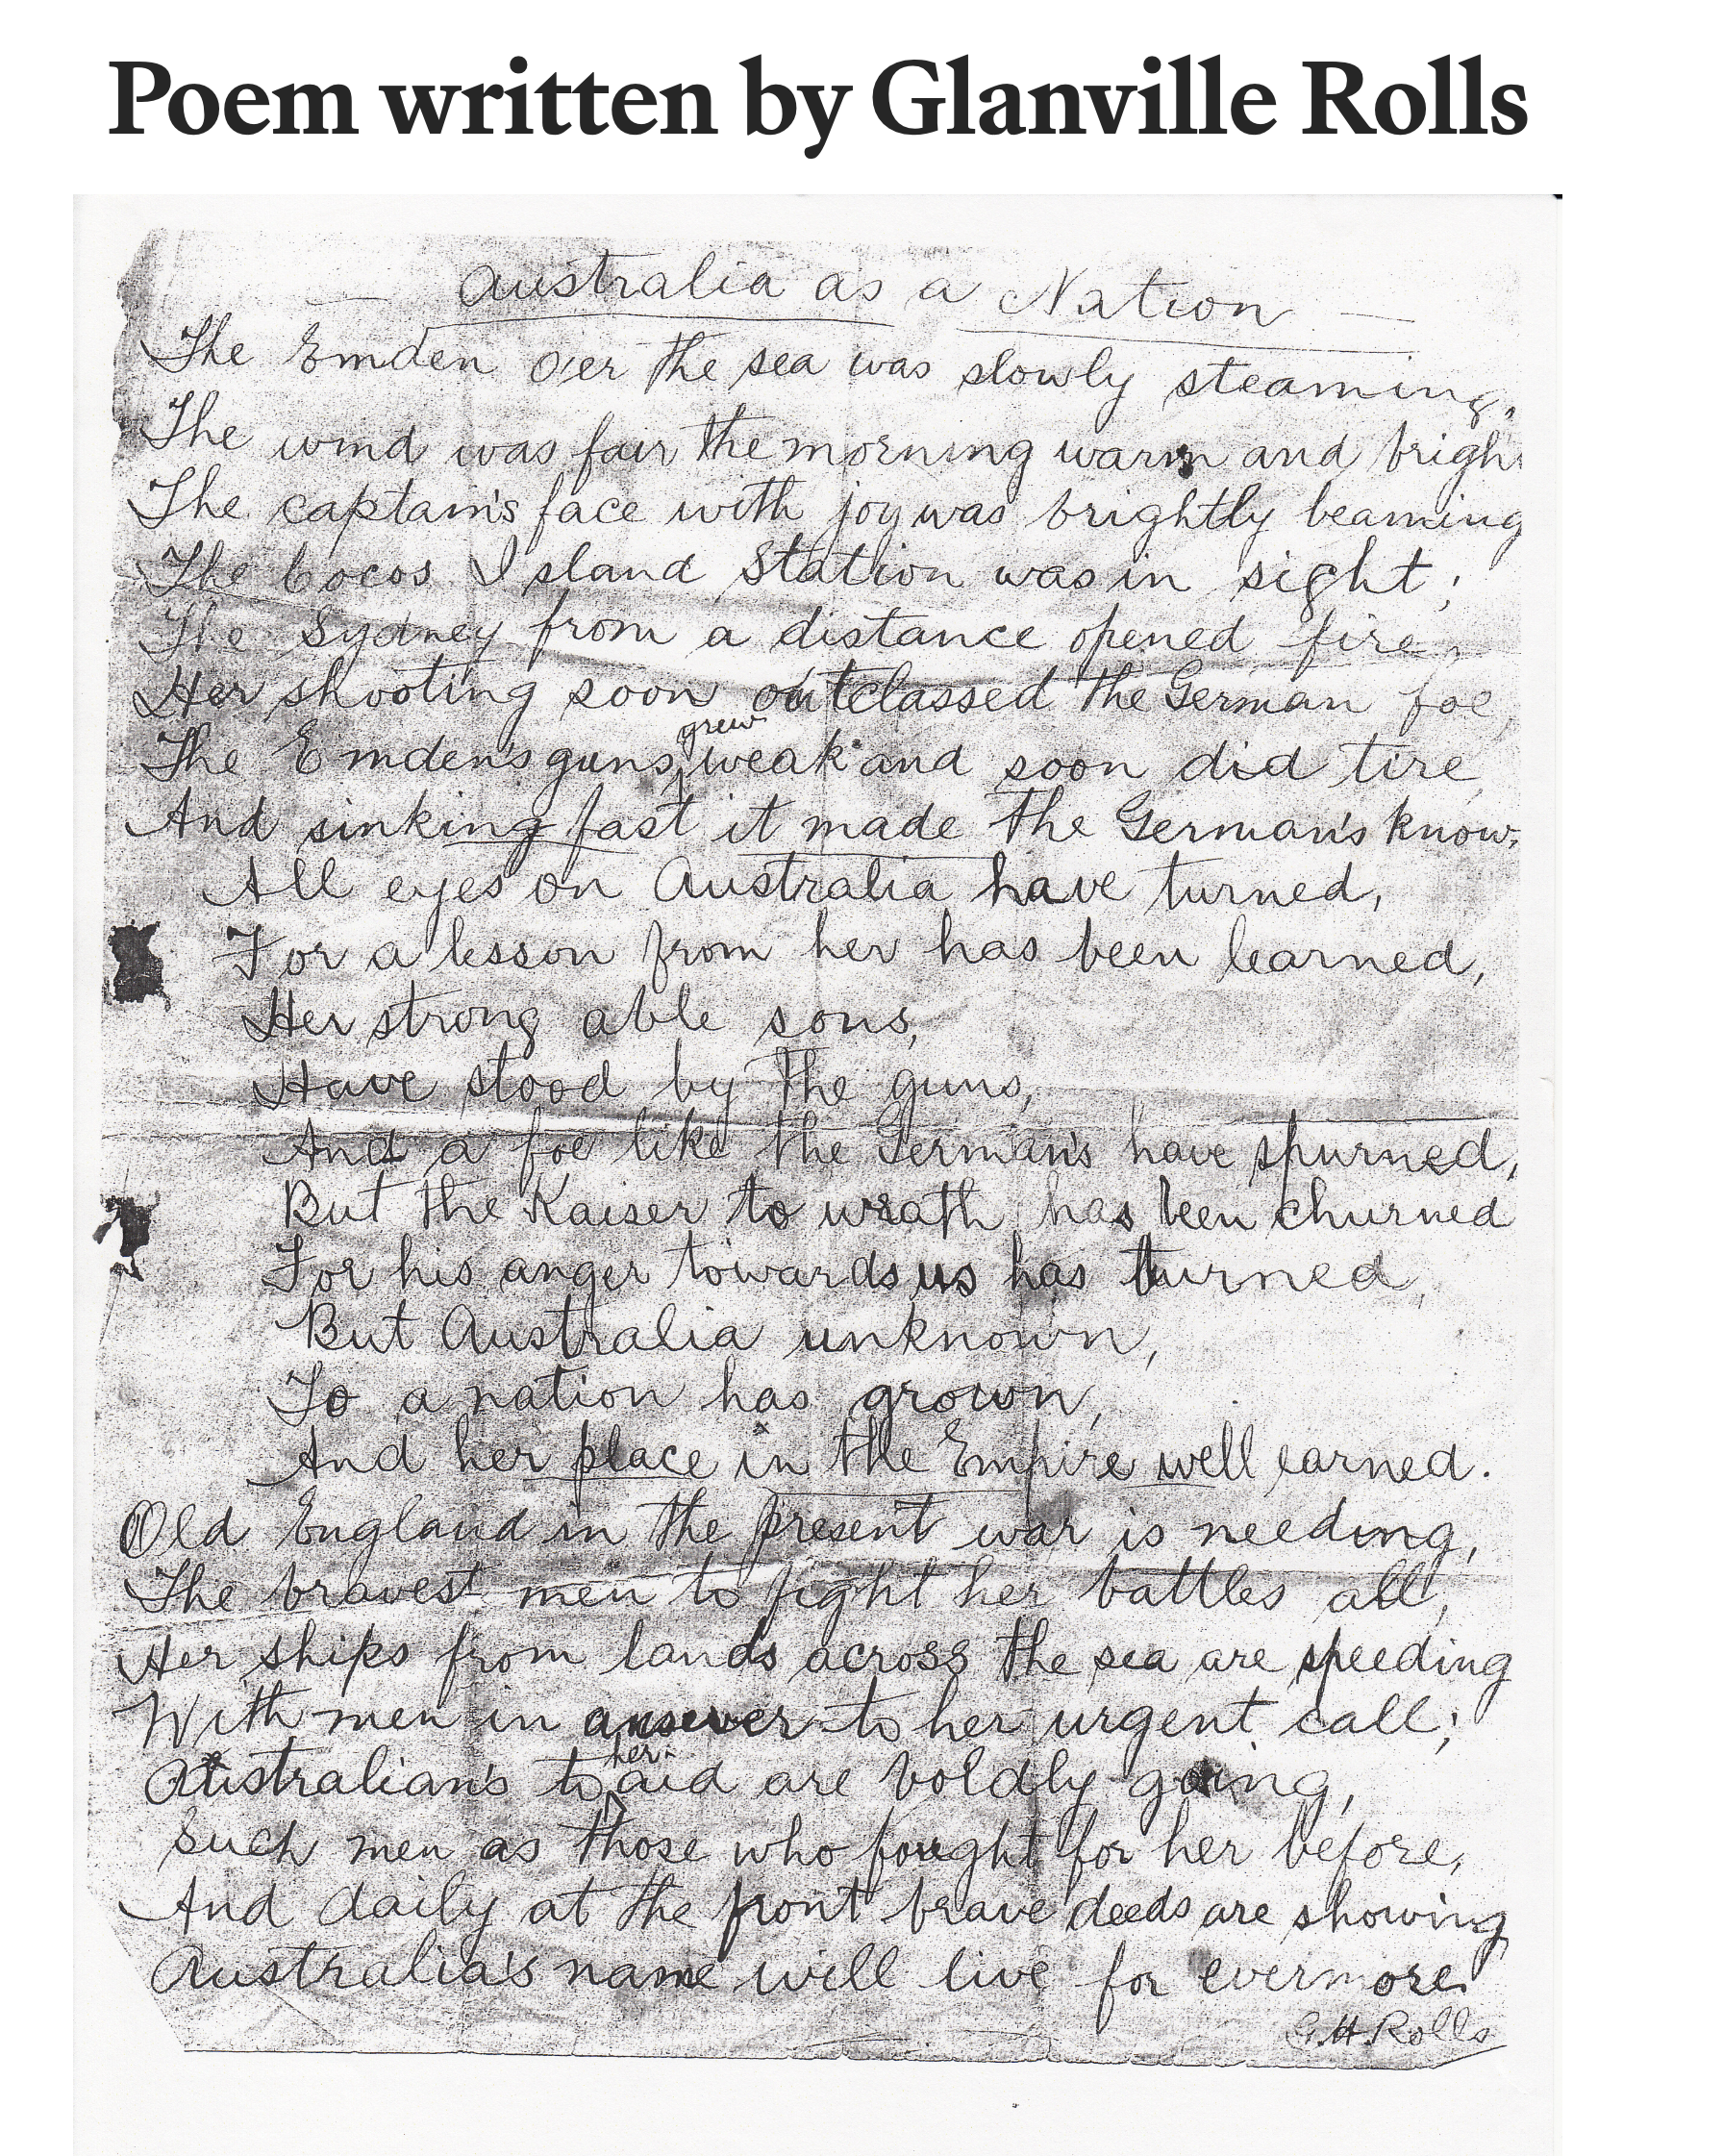 Poem written by Glanville Rolls
Australia as a Nation
The Emden o'er the sea was slowly steaming,
The wind was fair the morning warm and brigh
The captain's face with joy was brightly beaming
The Cocos Island Station was in sight;
The Sydney from a distance opened fire,
Her shooting soon outclassed the German foe,
The Emden's guns grew weak and soon did tire
And sinking fast it made the German's know,
All eyes on Australia have turned,
For a lesson from her has been learned,
Her strong able sons,
Have stood by the guns,
And a foe like the German's have spurned,
But the Kaiser to wrath has been churned
For his anger towards us has turned,
But Australia unknown,
To a nation has grown,
And her place in the Empire well earned.
Old England in the present war is needing,
The bravest men to fight her battles all,
Her ships from lands across the sea are speeding
With men in answer to her urgent call;
Australian's to her aid are boldly going,
Such men as those who fought for her before,
And daily at the front brave deeds are showing
Australia's name will live for evermore.
G.H.Rolls